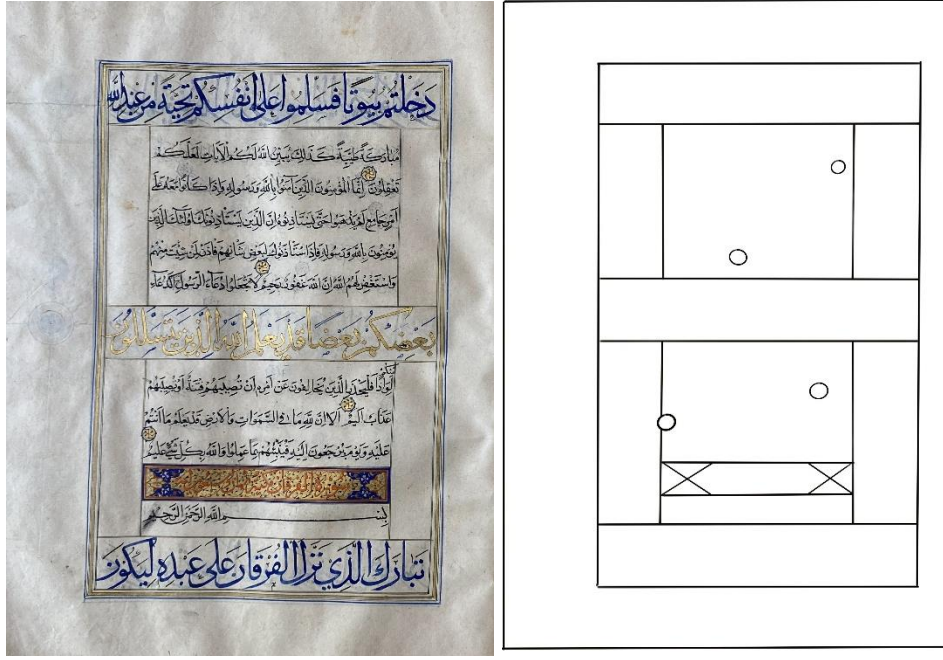 دخلتم بيوتا فسلموا على انفسكم تحية من عند الله
مباركة طيبة كذلك يبين الله لكم الايات لعلكم
تعقلون انما المؤمنون الذين آمنوا بالله ورسوله واذا كانوا معه على
امر جامع لم يذهبوا حتى يستاذنوه ان الذين يستاذنونك اولئك الذين
يؤمنون بالله ورسوله فاذا استاذنوك لبعض شانهم فاذن لمن شئت منهم
واستغفر لهم الله ان الله غفور رحيم لا تجعلوا دعاء الرسول كدعاء
بعضكم بعضا قد يعلم الله الذين يتسللون
منكم
لواذا فليحذر الذين يخالفون عن امره ان تصيبهم فتنة او يصيبهم
عذاب اليم الا ان لله ما في السموات والارض قد يعلم ما انتم
عليه ويوم يرجعون اليه فينبئهم بما عملوا والله بكل شيء عليم
سورة الفرقان
بسم الله الرحمن الرحيم
تبارك الذي نزل الفرقان على عبده ليكون